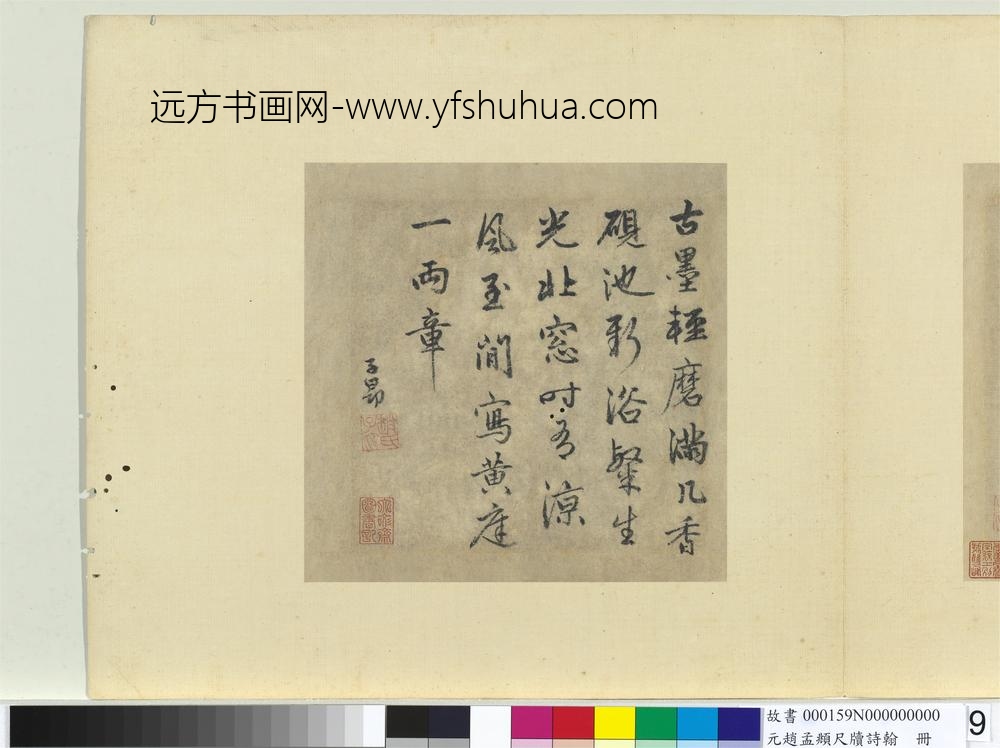 远方书画网-www.yfshuhua.com
古墨輕磨滿几香
硯池新浴粲生
光北窓時有涼
風至閒寫黄庭
一兩章
子昂
故書 000159N000000000
元趙孟頫尺牘詩翰 冊
9